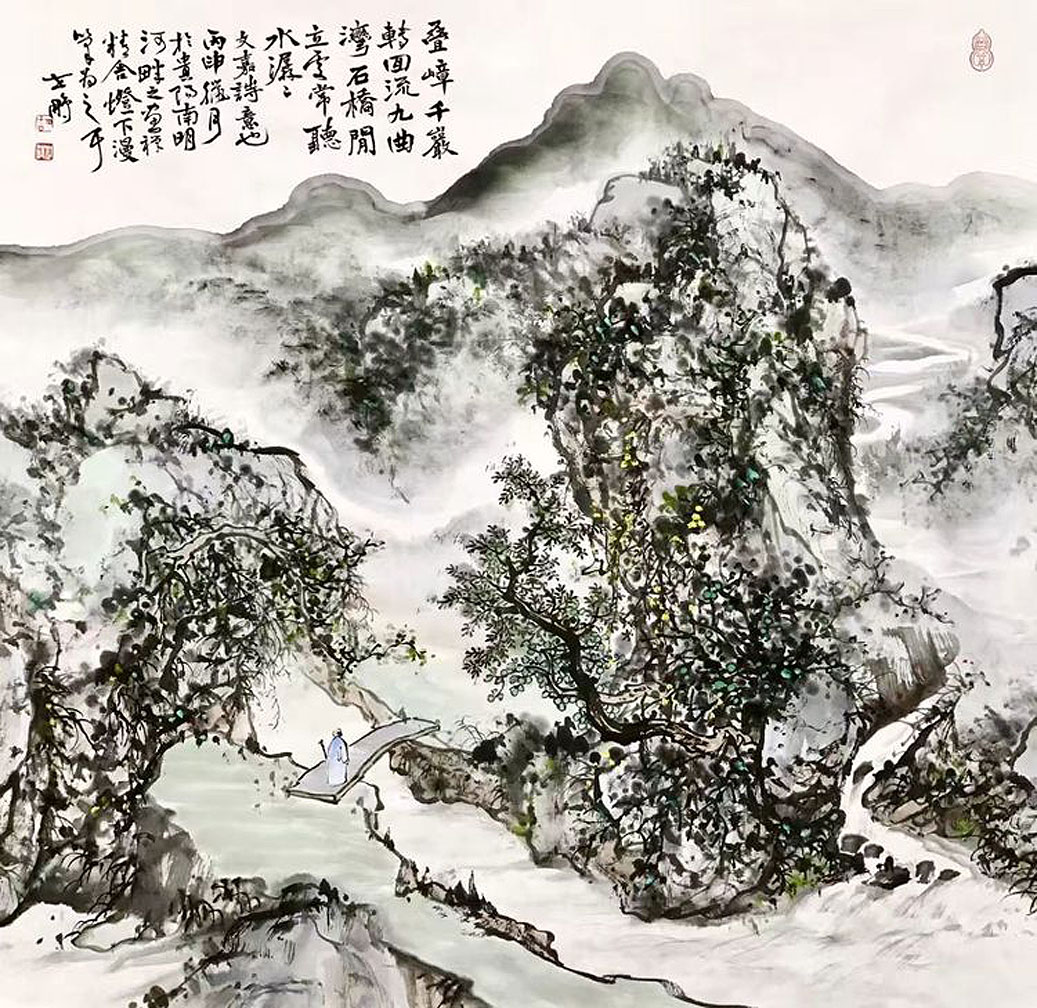 叠嶂千巖
轉回流九曲
灣石橋閒
立雲常聽
水潺〻
文嘉詩意也
丙申臘月
於貴陽南明
河畔之畫禪
精舍燈下漫
筆为之耳